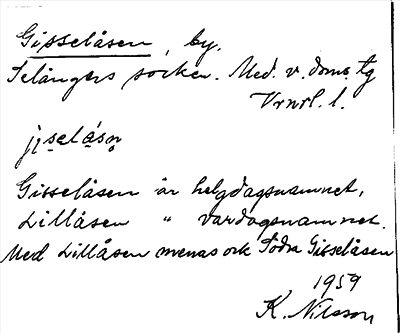 Gisselåsen, by.
Selångers socken. Med. v. doms. tg
Vrnrl. l.
jiselåsn̥
Gisselåsen är helgdagsnamnet,
Lillåsen " vardagsnamnet.
Med Lillåsen menas ock Södra Gisselåsen
1959
K. Nilsson